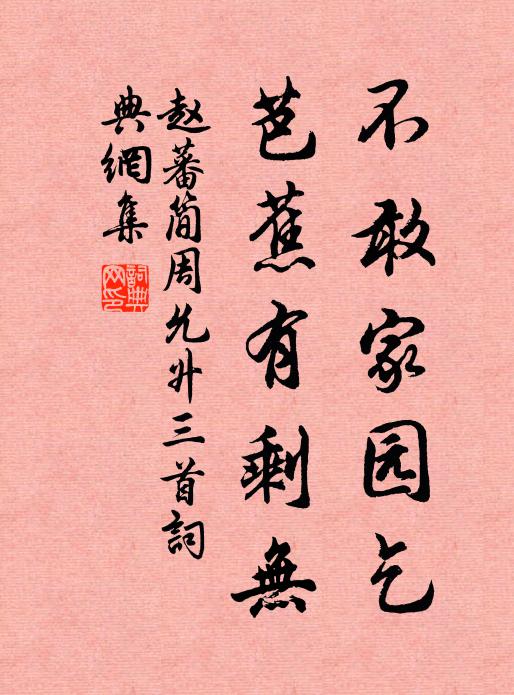 不敢家园乞
芭蕉有剩無
赵蕃简周允升三首詞
典網集
詞典網印